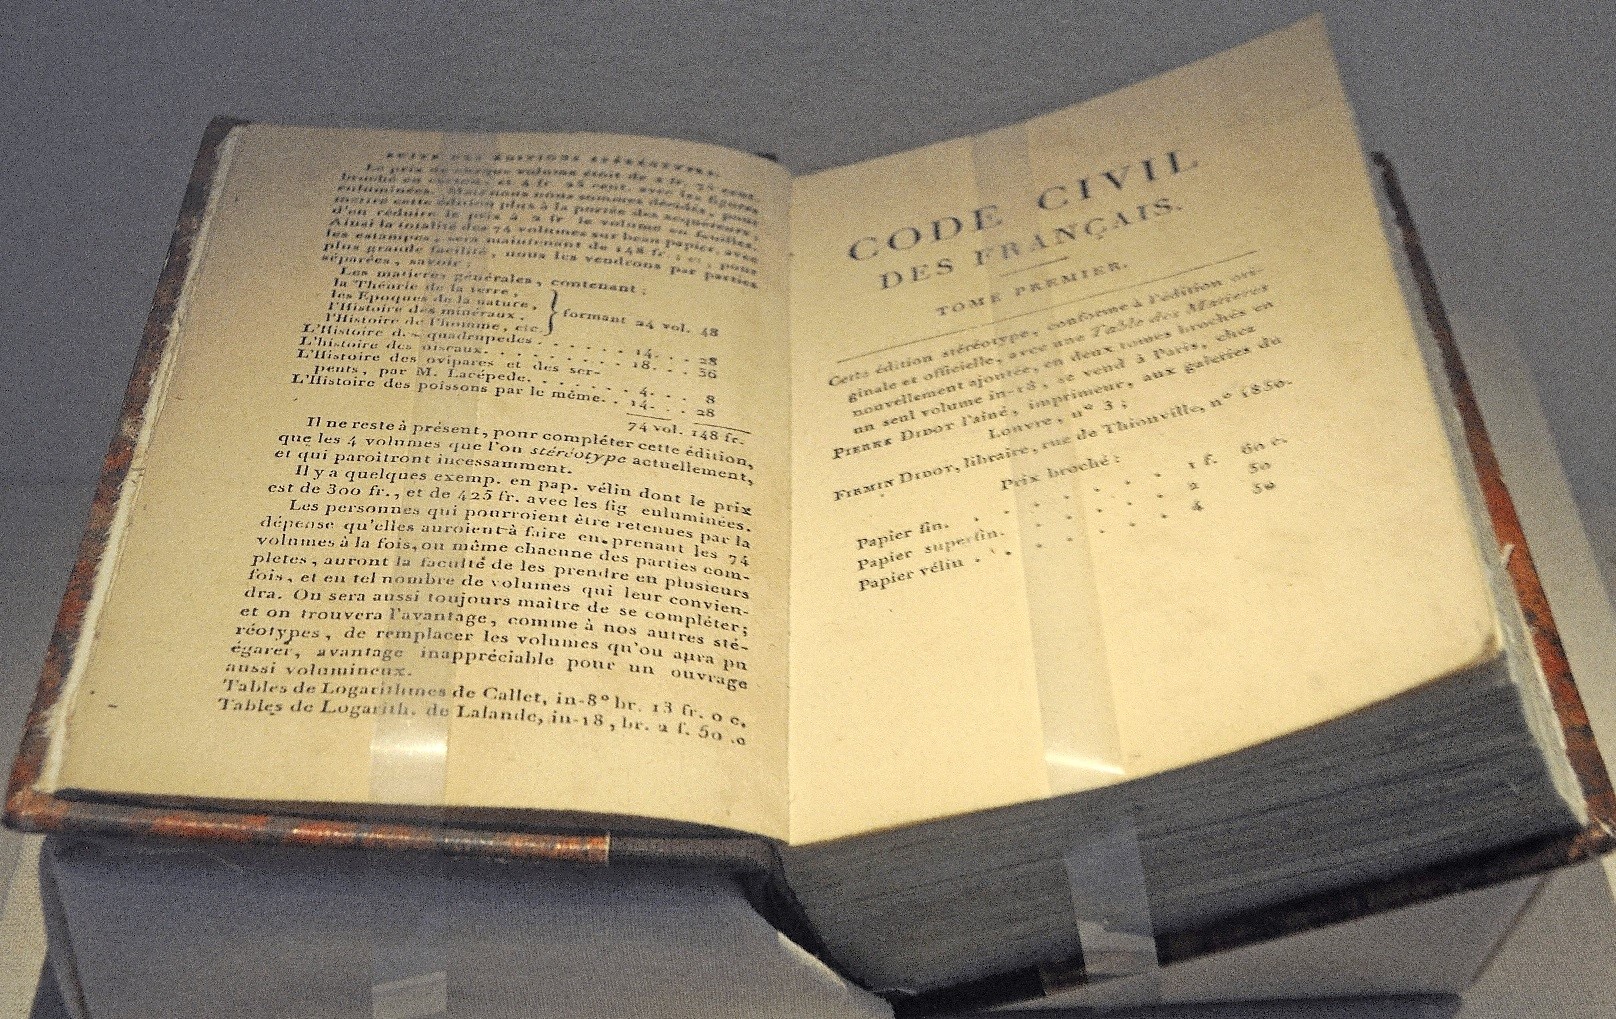 SUITE DES ÉDITIONS STÉRÉOTYPES.
Le prix de chaque volume étoit de 2 fr. 75 cent.
broché en cartons et 4 fr. 25 cent. avec les figures
enluminées. Mais nous nous sommes décidés, pour
mettre cette édition plus à la portée des acquéreurs,
d'en réduire le prix à 2 fr. le volume en feuilles.
Ainsi la totalité des 74 volumes sur beau papier, avec
les estampes, sera maintenant de 148 fr.; et, pour
plus grande facilité, nous les vendrons par parties
séparées, savoir:
Les matieres générales, contenant:
la Théorie de la terre,
les Epoques de la nature,
l'Histoire des minéraux.
l'Histoire de l'homme, etc.
} formant 24 vol. 48
L'Histoire des quadrupedes. . . . . . . 14. . . 28
L'histoire des oiseaux. . . . . . . . . 18. . . 36
L'Histoire des ovipares et des ser-
pents, par M. Lacépede. . . . . . . 4. . . 8
L'Histoire des poissons par le même. . 14. . . 28
74 vol. 148 fr.
Il ne reste à présent, pour compléter cette édition,
que les 4 volumes que l'on stéréotype actuellement,
et qui paroitront incessamment.
Il y a quelques exemp. en pap. vélin dont le prix
est de 300 fr., et de 425 fr. avec les fig enluminées.
Les personnes qui pourroient être retenues par la
dépense qu'elles auroient à faire en prenant les 74
volumes à la fois, ou même chacune des parties com-
pletes, auront la faculté de les prendre en plusieurs
fois, et en tel nombre de volumes qui leur convien-
dra. On sera aussi toujours maitre de se compléter;
et on trouvera l'avantage, comme à nos autres sté-
réotypes, de remplacer les volumes qu'ou aura pu
égarer, avantage inappréciable pour un ouvrage
aussi volumineux.
Tables de Logarithmes de Callet, in-8° br. 13 fr. 0 c.
Tables de Logarith. de Lalande, in-18, br. 2 f. 50 .0
CODE CIVIL
DES FRANÇAIS.
TOME PREMIER.
Cette édition stéréotype, conforme à l'édition ori-
ginale et officielle, avec une Table des Matieres
nouvellement ajoutée, en deux tomes brochés en
un seul volume in-18, se vend à Paris, chez
PIERRE DIDOT l'ainé, imprimeur, aux galeries du
Louvre, n° 3;
FIRMIN DIDOT, libraire, rue de Thionville, n° 1850.
Prix broché:
Papier fin. . . . . . . . 1 f. 60 c.
Papier superfin. . . . . . . 2 50
Papier vélin . . . . . . . 4 50